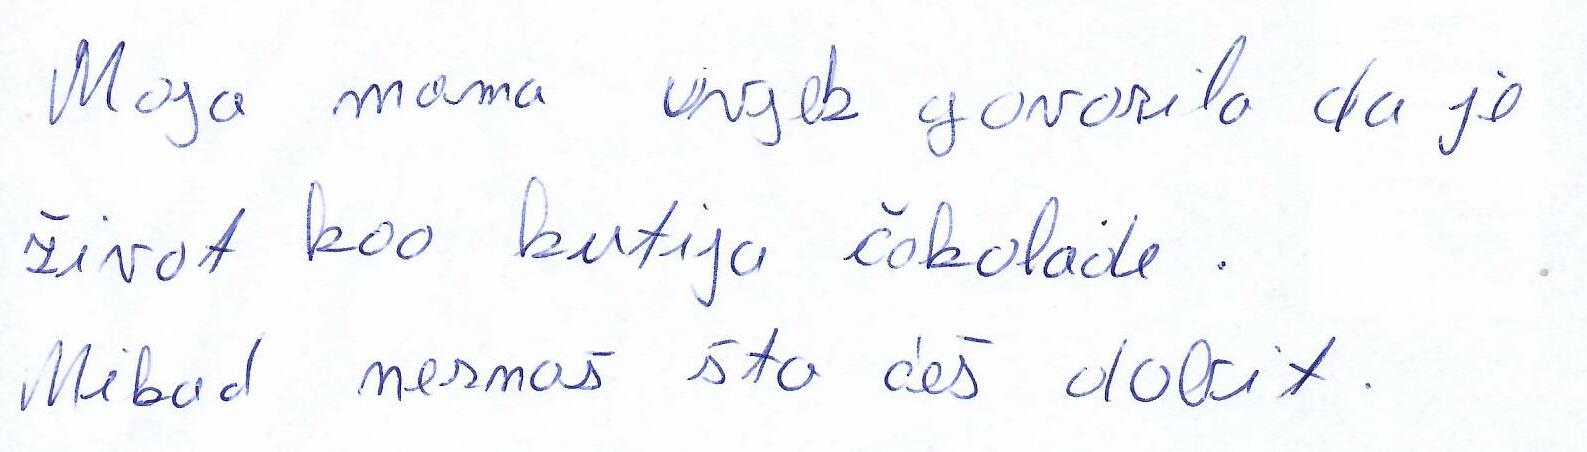 Moja mama uvjek govorila da je
život kao kutija čokolade.
Nikad neznaš šta ćeš dobit.